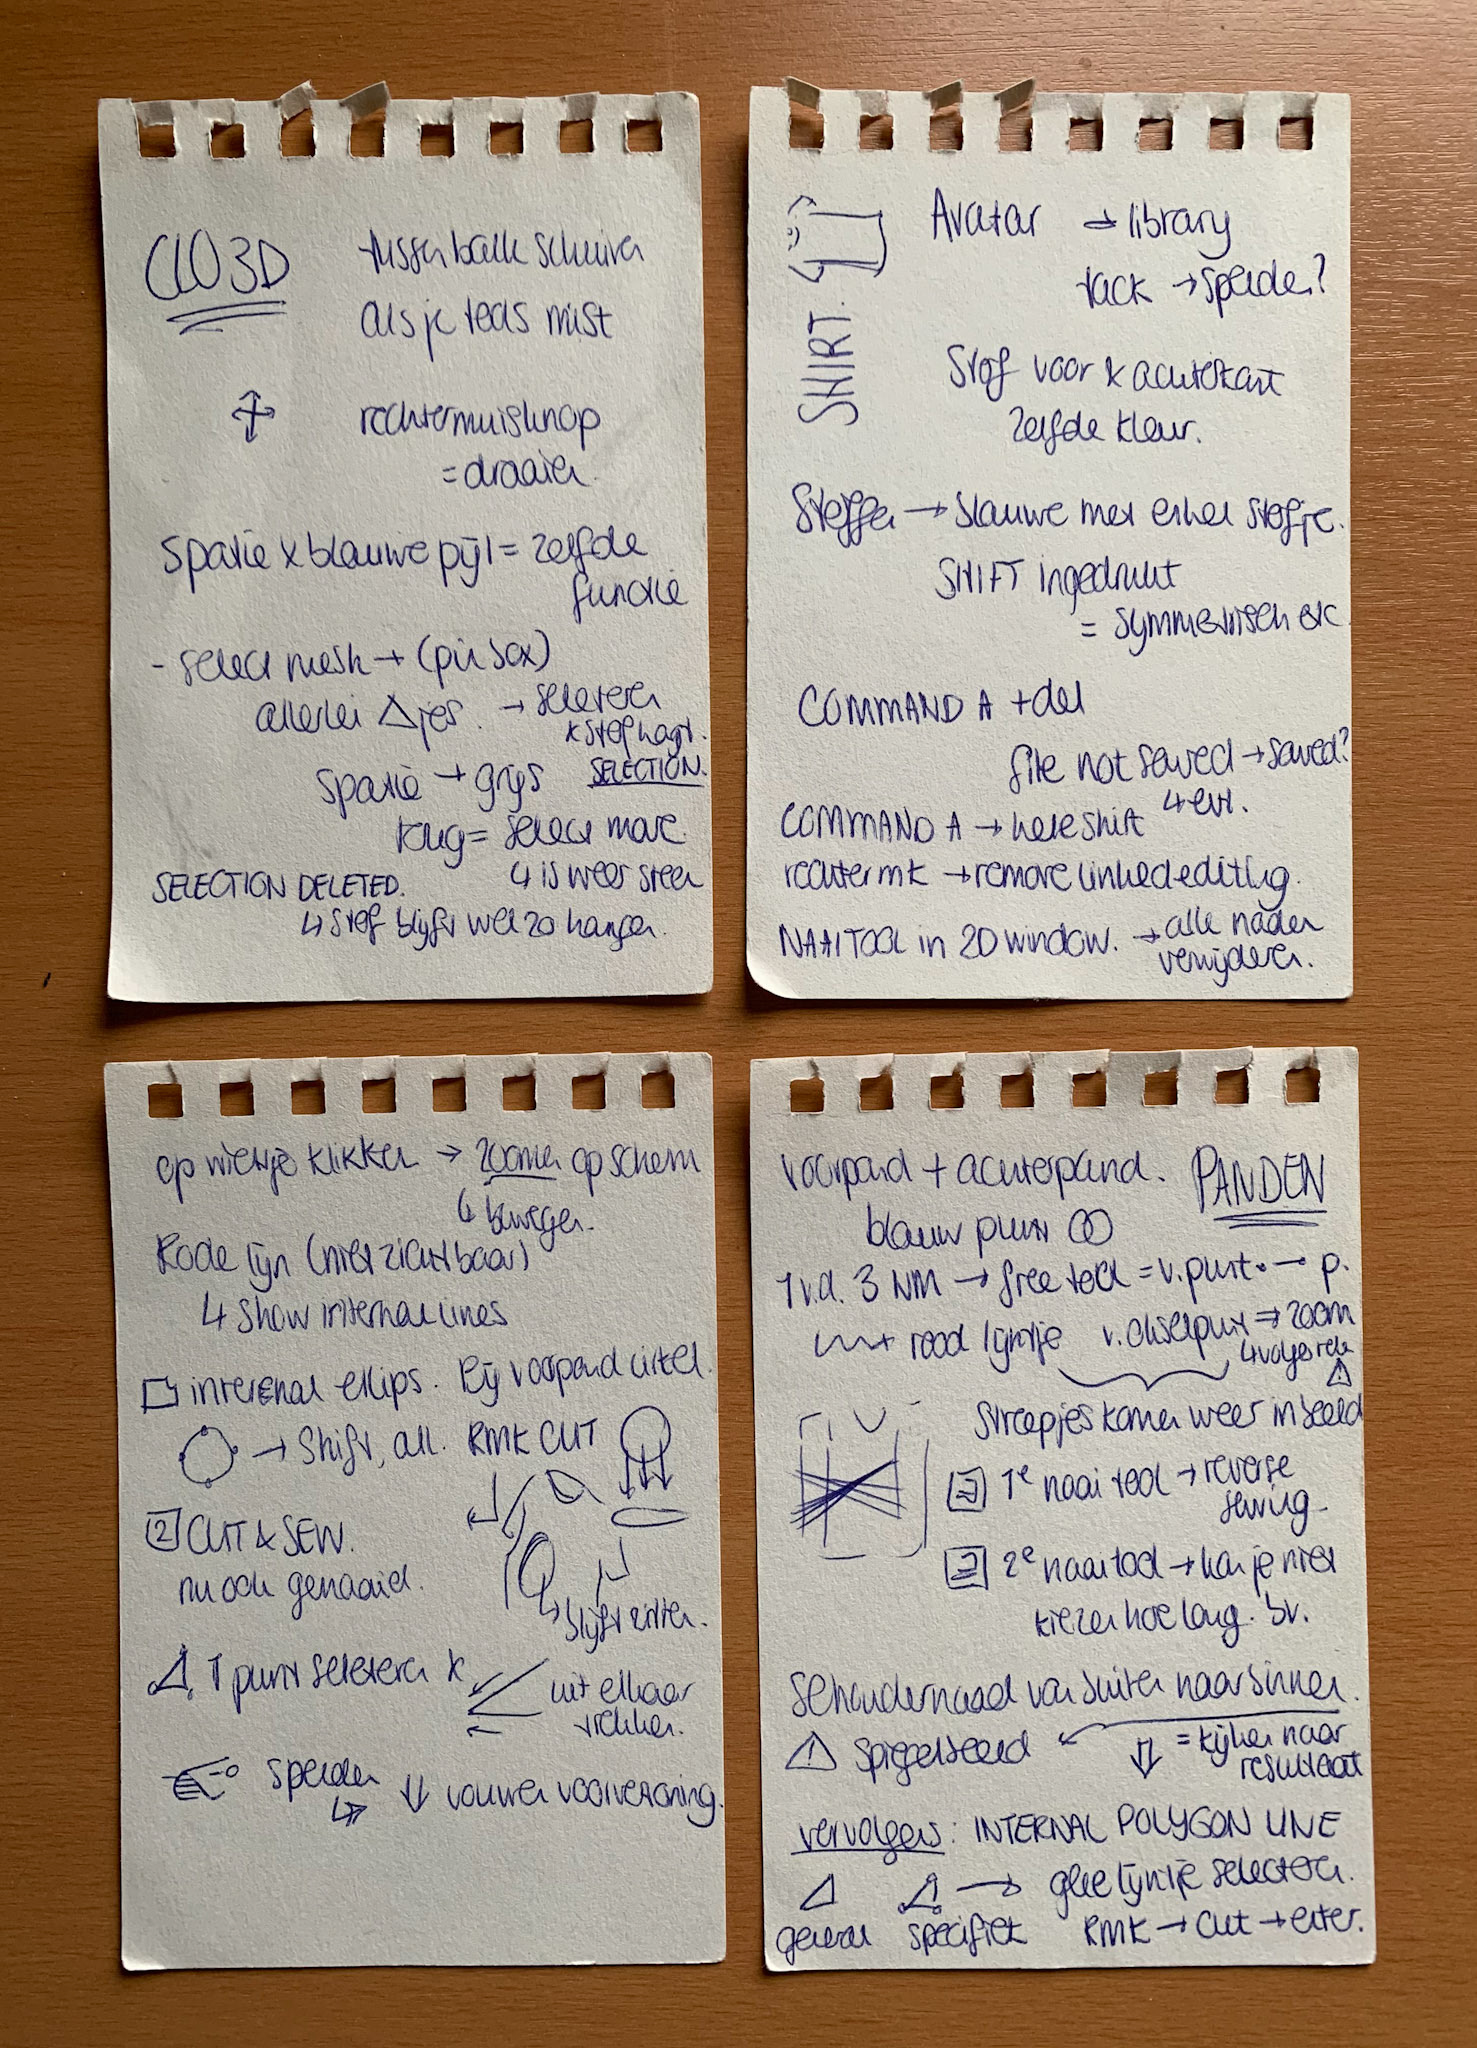 CLO3D
tussenbalk schuiven
als je tools mist
rechtermuisknop
= draaien.
Spatie & blauwe pijl = zelfde
functie
- select mesh → (pin box)
allerlei △tjes. → seleteren
& stof hangt.
Spatie → grijs SELECTION.
terug = select move.
↳ is weer steen
SELECTION DELETED.
↳ stof blijft wel zo hangen.
SHIRT.
Avatar → library
tack → spelden?
Stof voor & achterkant
zelfde kleur.
Stoffen → blauwe met enkel stofje.
SHIFT ingedrukt
= symmetrisch etc
COMMAND A + del
file not saved → saved?
↳ evt.
COMMAND A → hele shirt
rechter mk → remove linked editing.
NAAITOOL in 2D window. → alle naden
verwijderen.
op wieltje klikken → zoomen op scherm
↳ bewegen.
Rode lijn (niet zichtbaar)
↳ show internal lines
internal ellips. Bij voorpand cirkel.
→ Shift, all. RMK CUT
2 CUT & SEW.
nu ook genaaid.
↳ blijft zitten.
1 punt seleteren &
uit elkaar
trekken.
spelden
vouwen voorverening.
voorpand + achterpand. PANDEN
blauw punt
1 v.d. 3 NM → free tool = v. punt → p.
rood lijntje v. okselpunt ⇒ zoom
↳ volgorde
⚠
streepjes komen weer in beeld
1e naai tool → reverse
sewing
2e naaitool → kan je niet
kiezen hoe lang. bv.
Schoudernaad van buiten naar binnen.
⚠ spiegelbeeld
= kijken naar
resultaat
vervolgens: INTERNAL POLYGON LINE
→ gele lijntje selecteren.
general specifiek RMK → cut → enter.